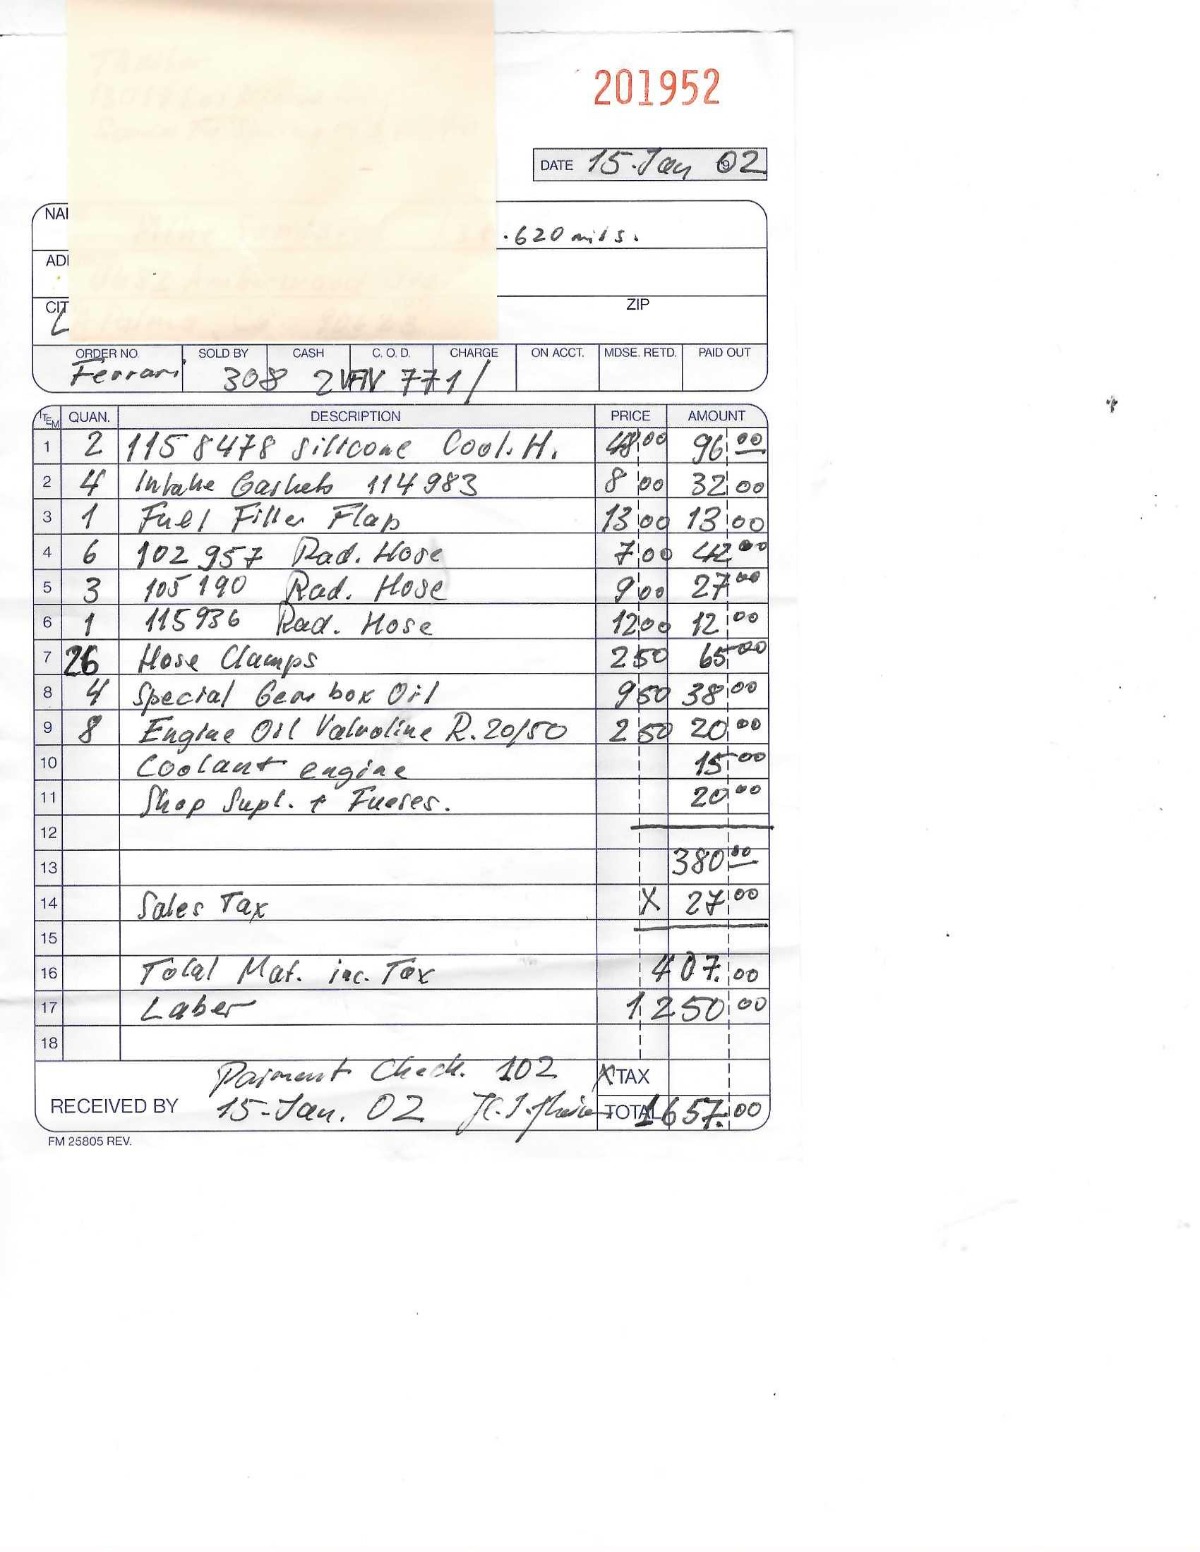 201952
DATE 15. Jan 02
NAI
. 620 mils.
ADI
CIT ZIP
ORDER NO. SOLD BY CASH C. O. D. CHARGE ON ACCT. MDSE. RETD. PAID OUT
Ferrari 308 771
ITEM QUAN. DESCRIPTION PRICE AMOUNT
1 2 1158478 Silicone Cool. H. 48 00 96 00
2 4 Intake Gaskets 114983 8 00 32 00
3 1 Fuel Filler Flap 13 00 13 00
4 6 102957 Rad. Hose 7 00 42 00
5 3 105190 Rad. Hose 9 00 27 00
6 1 115936 Rad. Hose 12 00 12 00
7 26 Hose Clamps 2 50 65 00
8 4 Special Gear box Oil 9 50 38 00
9 8 Engine Oil Valvoline R. 20/50 2 50 20 00
10 Coolant engine 15 00
11 Shop Supl. + Fueses. 20 00
12
13 380 00
14 Sales Tax X 27 00
15
16 Total Mat. inc. Tax 407. 00
17 Laber 1250 00
18
Paiment Check. 102 X TAX
RECEIVED BY 15-Jan. 02 TOTAL 1657. 00
FM 25805 REV.